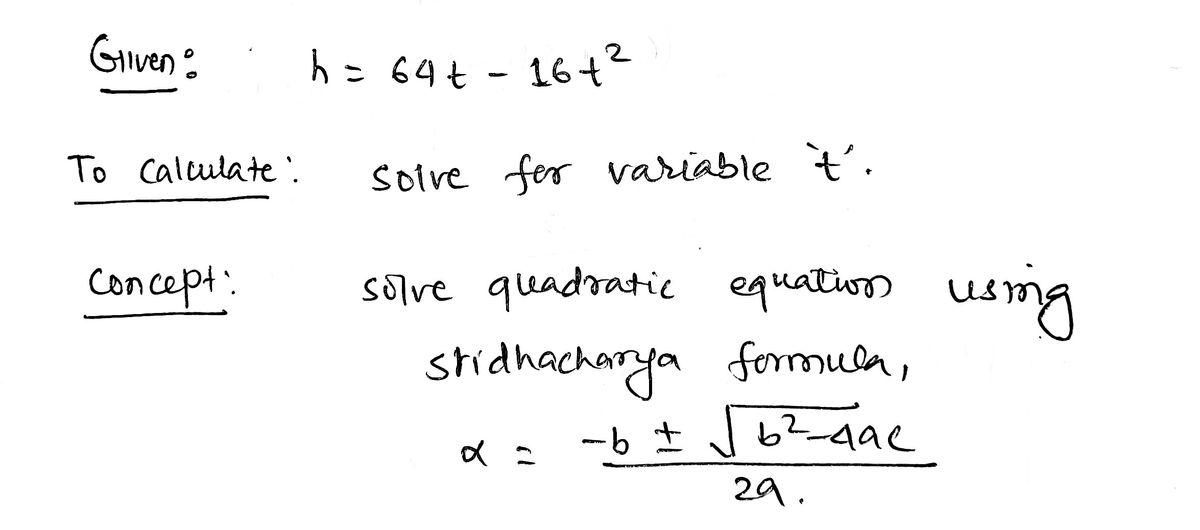 Given: h = 64t - 16t²
To Calculate: solve for variable `t'.
Concept: solve quadratic equation using
stridhacharya formula,
α = -b ± √b²-4ac
2a.